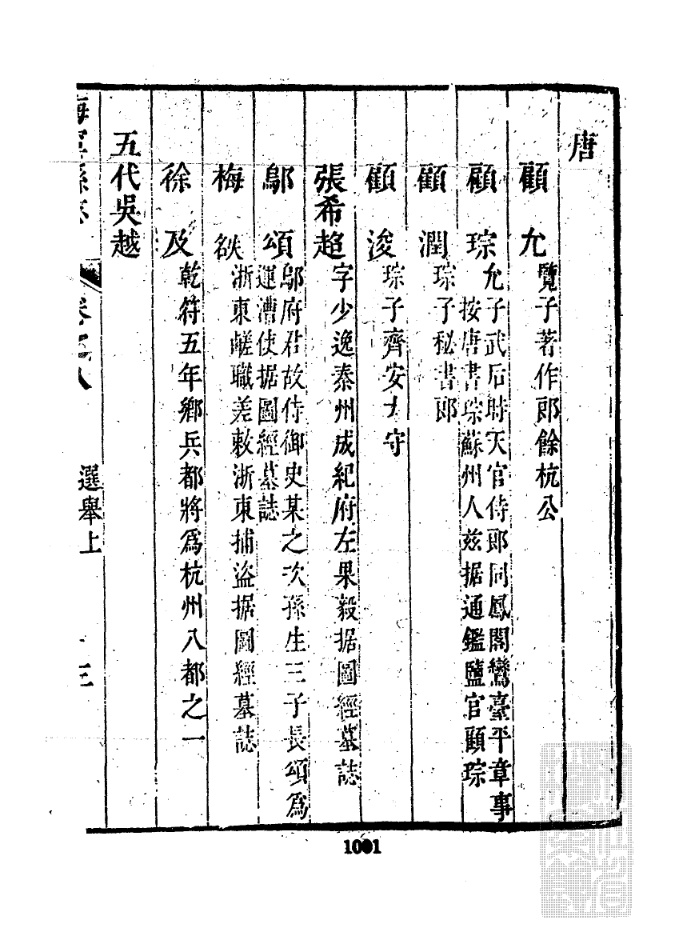 唐
顧允 覽子著作郎餘杭公
顧琮 允子武后時天官侍郎同鳳閣鸞臺平章事
按唐書琮蘇州人兹据通鑑鹽官顧琮
顧潤 琮子秘書郎
顧浚 琮子齊安太守
張希超 字少逸泰州成紀府左果毅据圖經墓誌
鄔頌 鄔府君故侍御史某之次孫生三子長頌爲
運漕使据圖經墓誌
梅 浙東鹾職差敕浙東捕盜据圖經墓誌
徐及 乾符五年鄉兵都將爲杭州八都之一
五代吳越
海寧縣志
卷之八
選舉上
三
1001